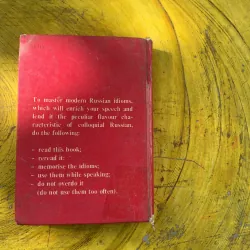 To master modern Russian idioms,
which will enrich your speech and
lend it the peculiar flavour cha-
racteristic of colloquial Russian,
do the following:
- read this book;
- reread it;
- memorise the idioms;
- use them while speaking;
- do not overdo it
(do not use them too often).